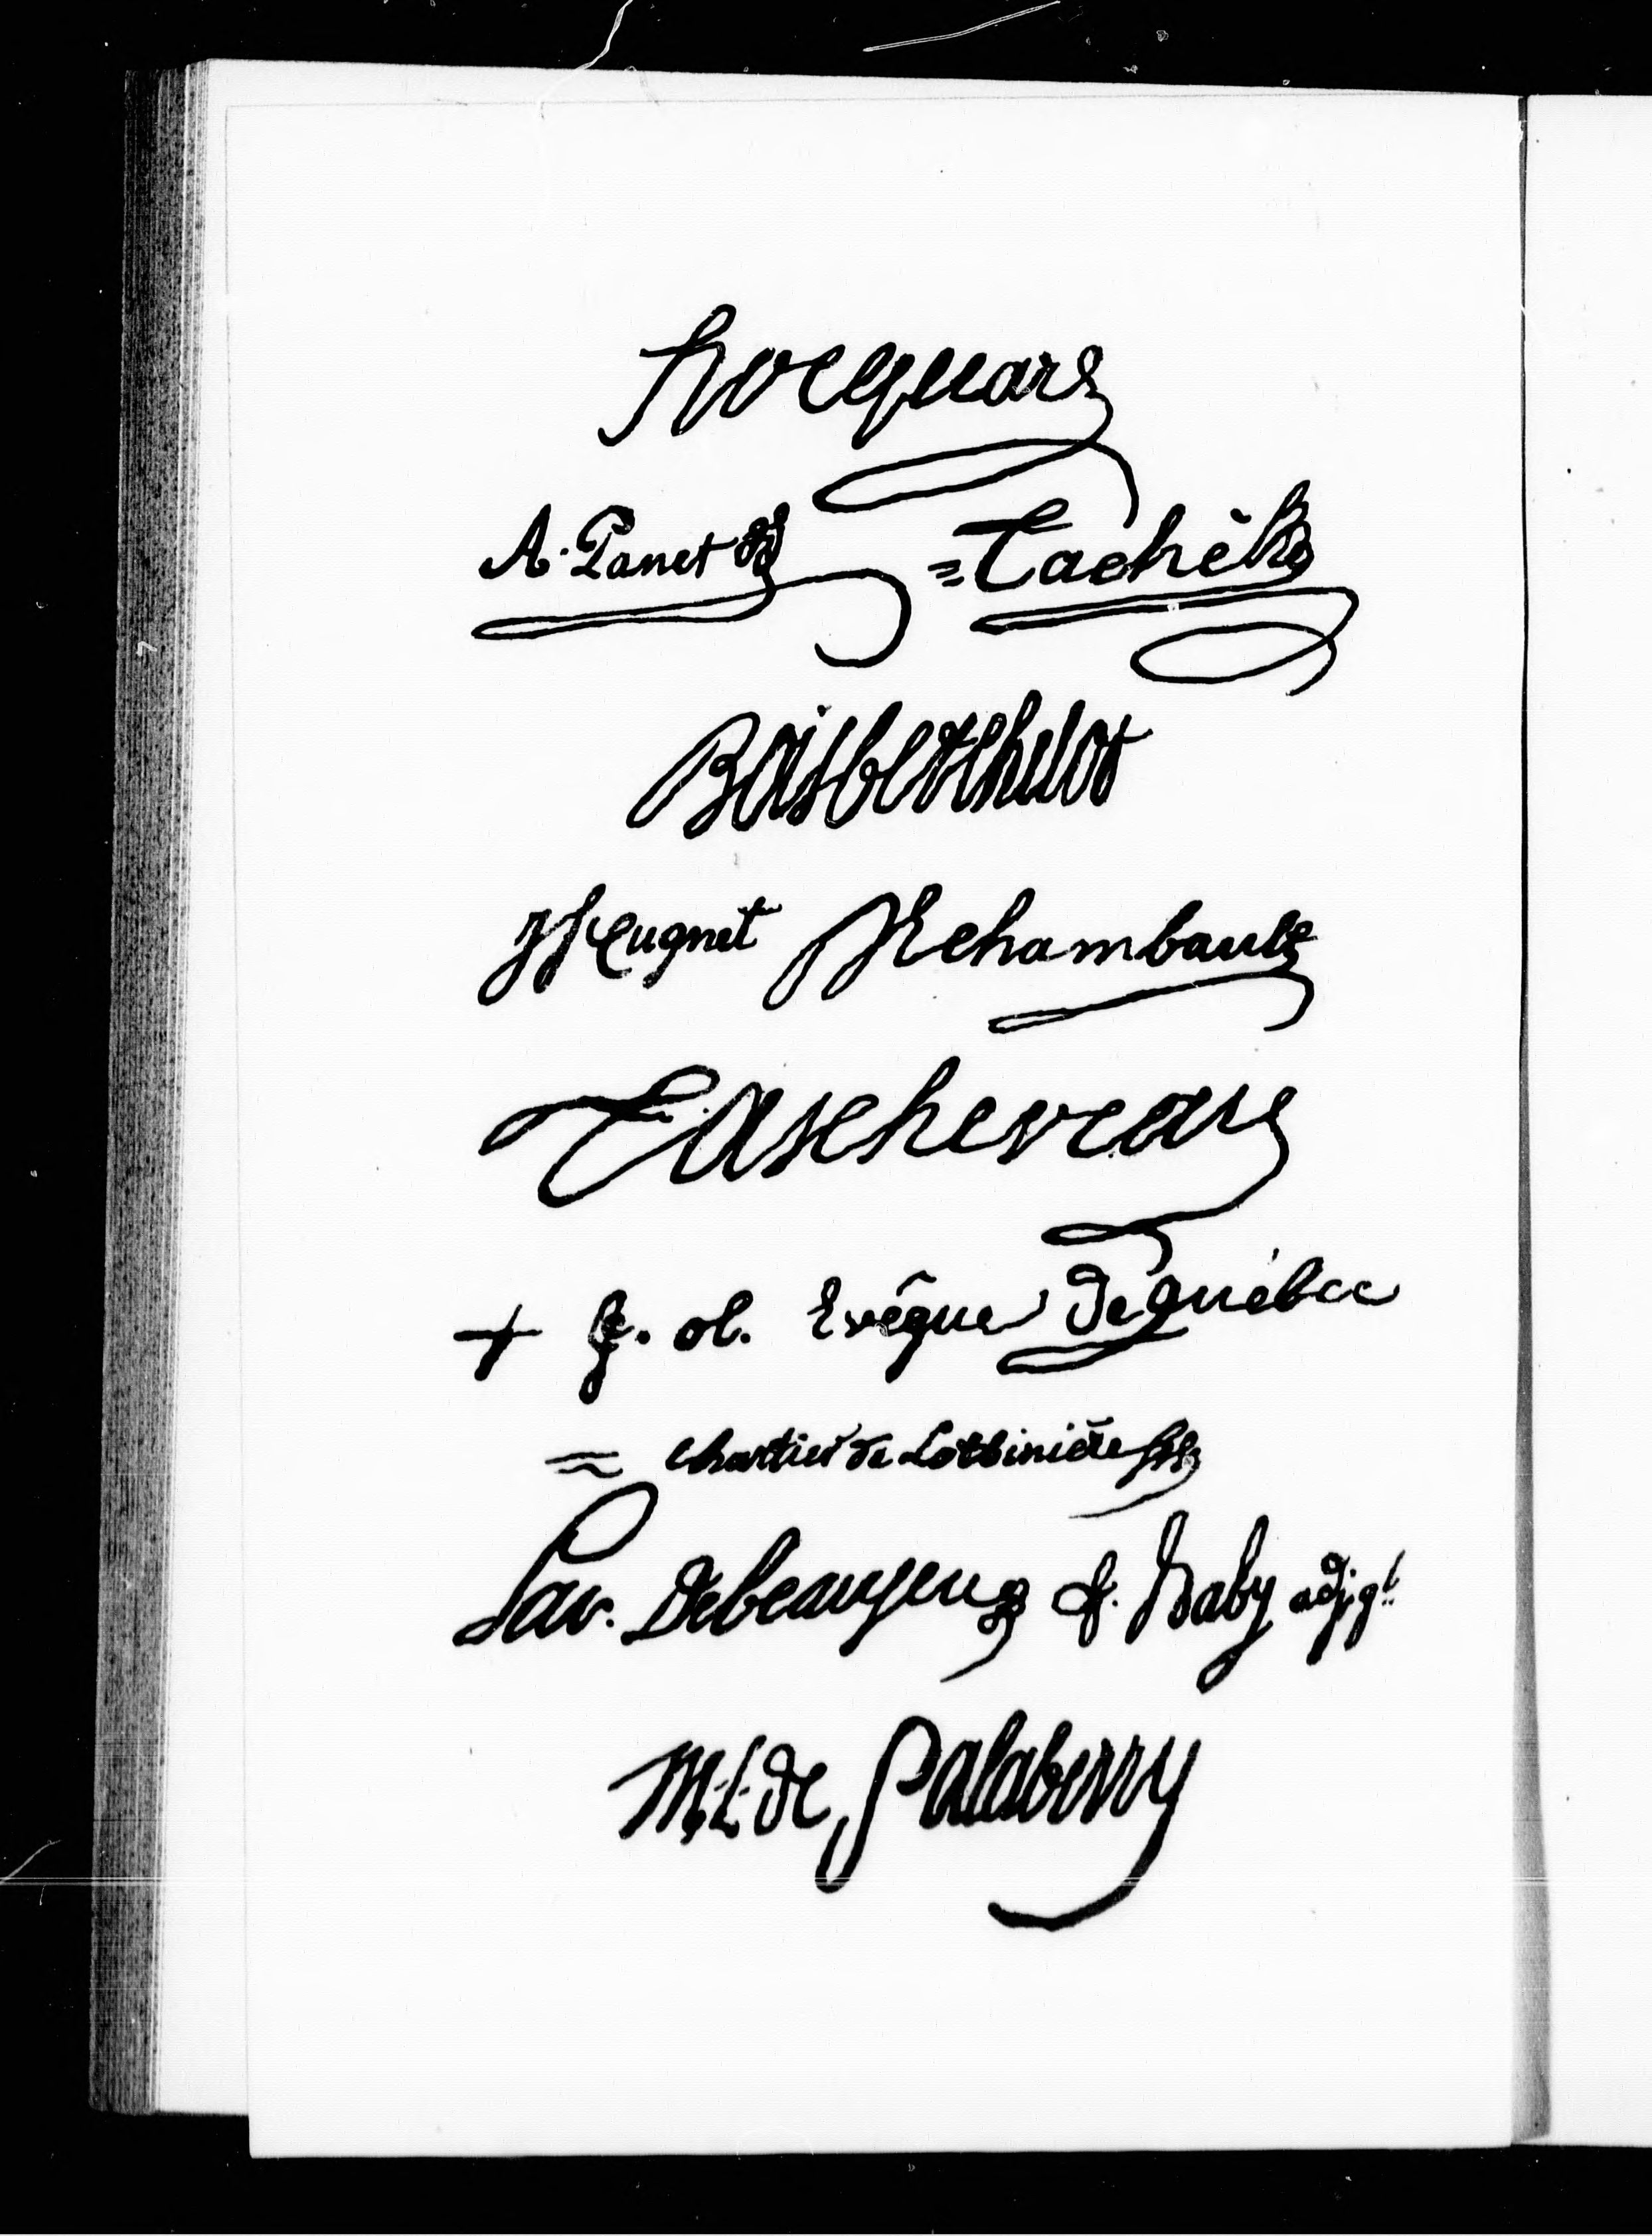 hocquart
A. Panet = Taché
Boisberthelot
JF Cugnet JEchambault
Taschereau
+ J. ol. Evêque de québec
= chartier de Lotbinière
Sav. Debeaujeu f. Baby adj. gl.
M. L. de Salaberry